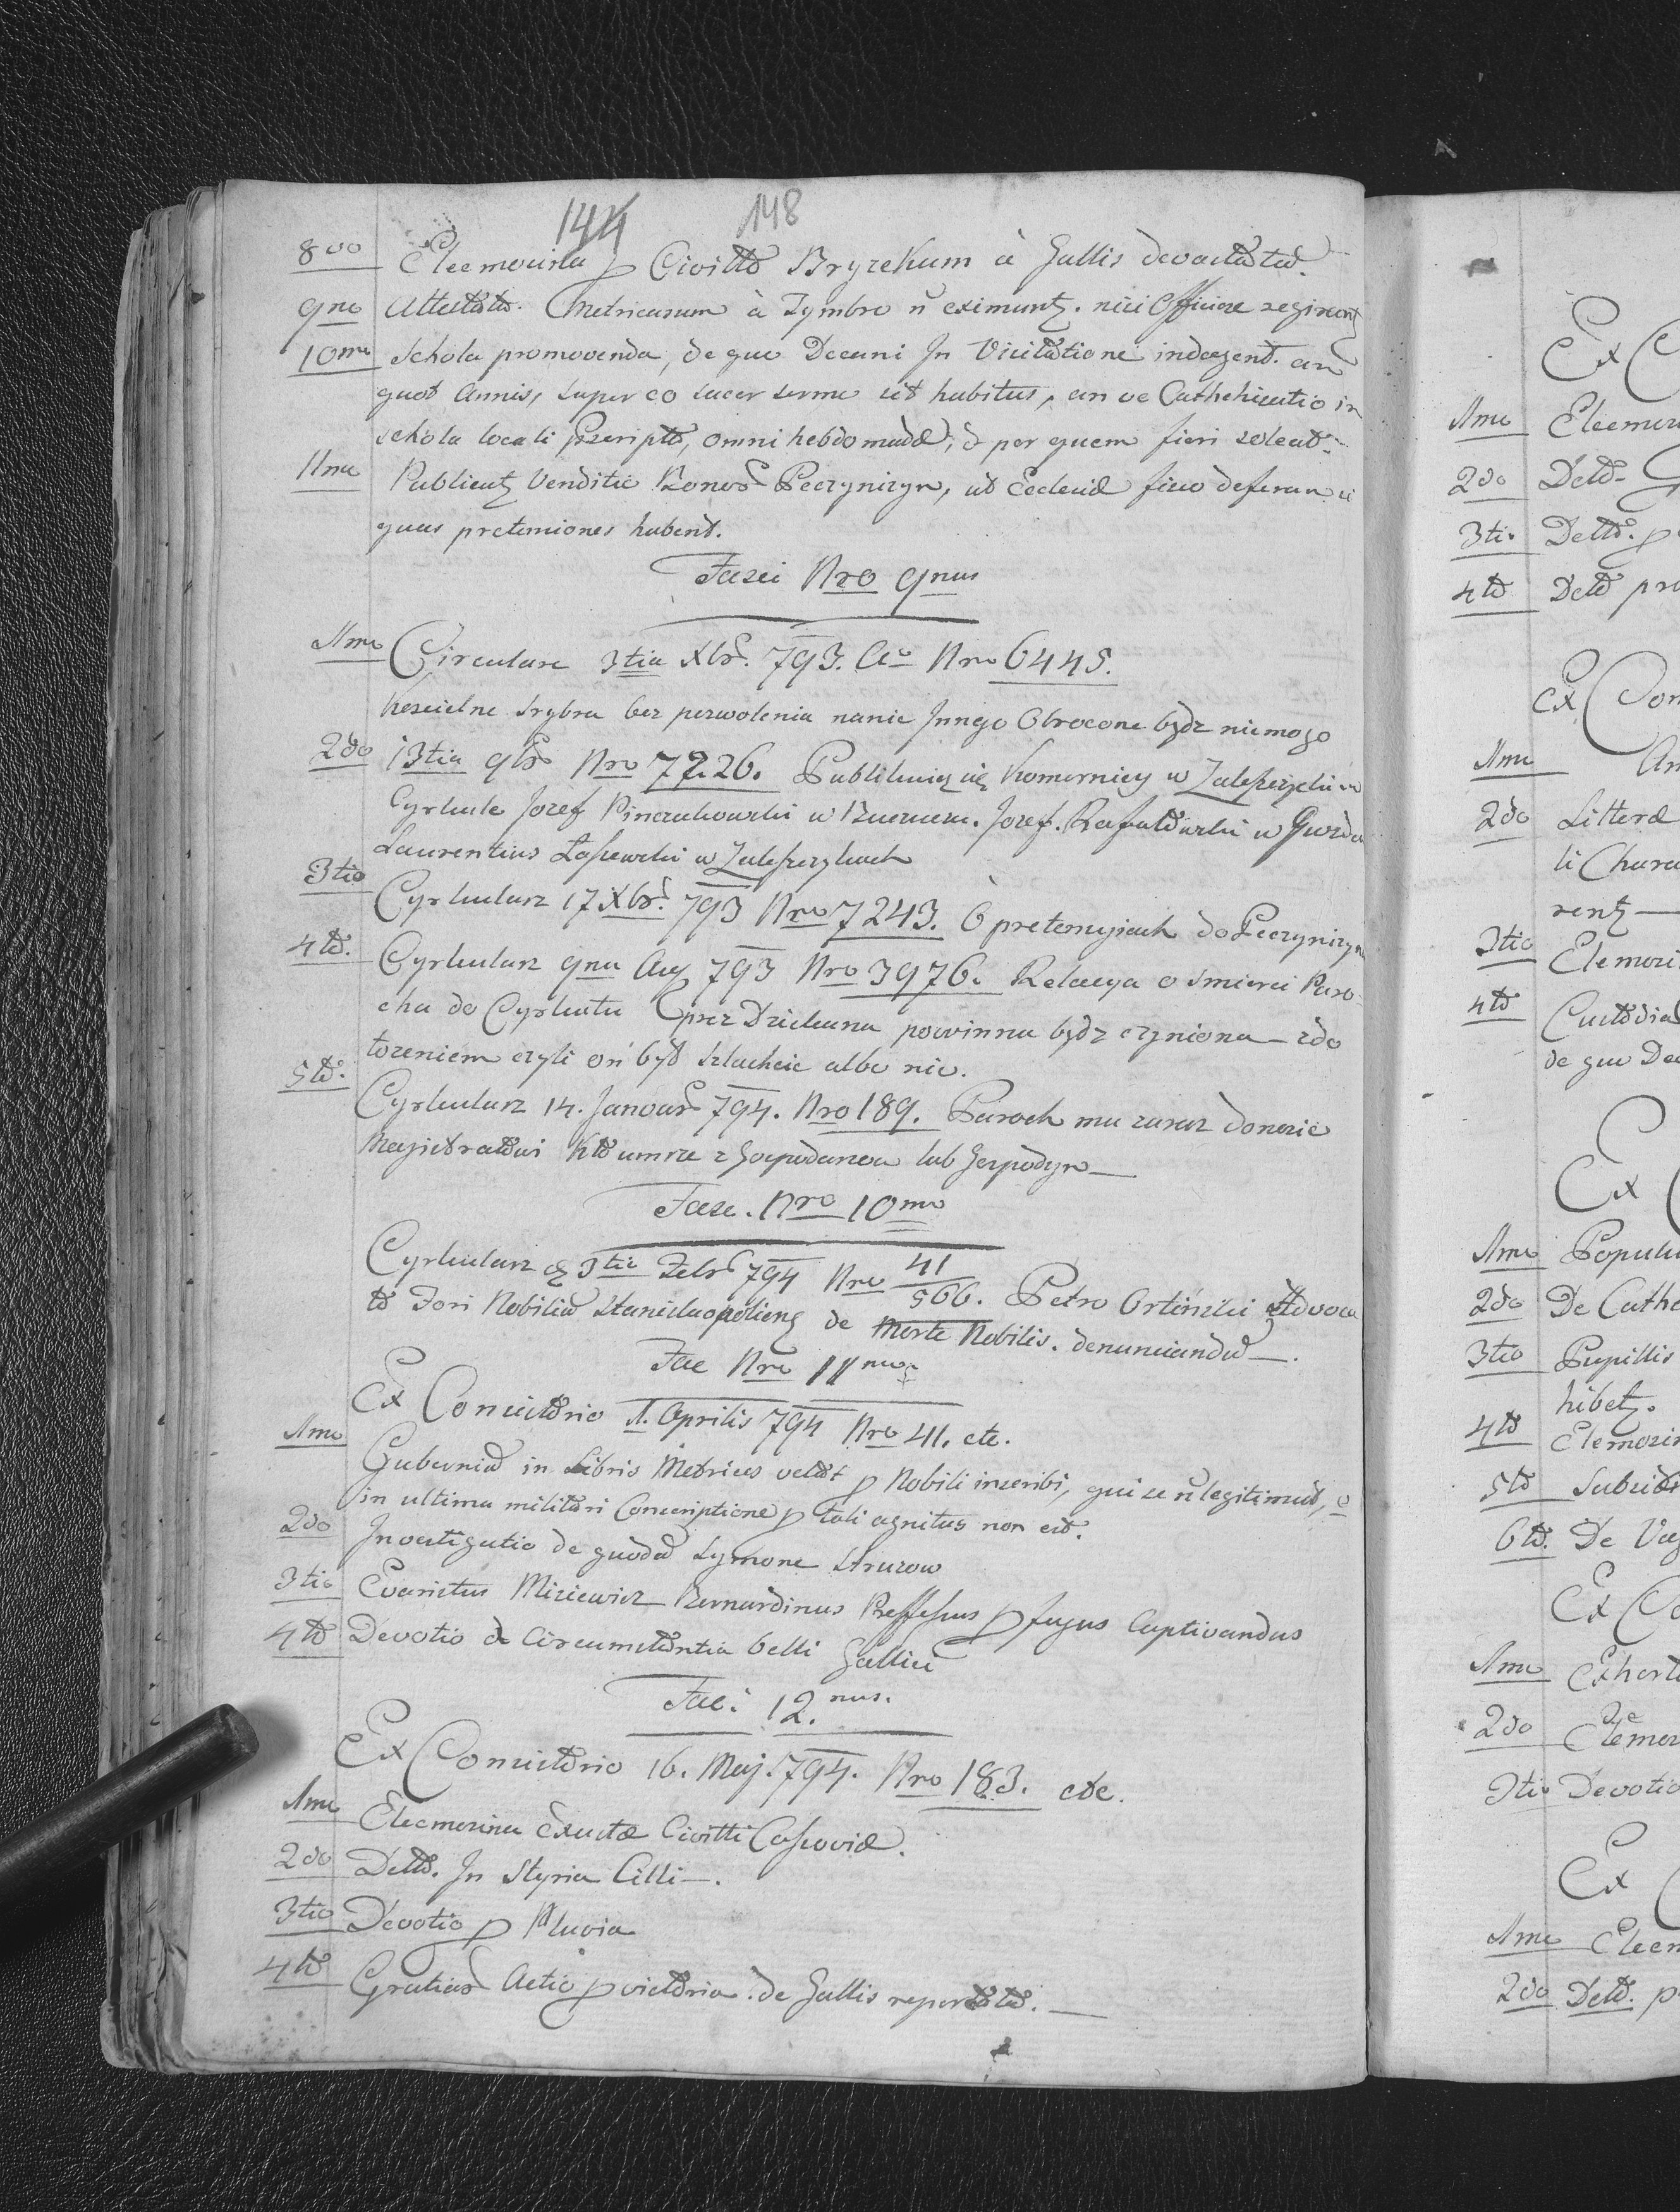 144 148
8vo Eleemosina p Civitte Bryzekum à Gallis devastata.
9no Attestata Metricarum à Tymbro ñ eximuntz. nisi Officiose
10mo Schola promovenda, de quo Decani In Visitatione indagent. an
quot Annis, super eo sacer sermo sit habitus, an ve Cathehisatio in
schola locali, omni hebdomada, & per quem fieri soleat.
11mo Publicatz Venditio Bonor Peczynizyn, ut Ecclesiæ fisco deferan si
quas pretensiones habent.
Fasci Nro 9nus
1mo Circulare 3tia Xbr. 793. Ao Nro 6445.
Koscielne srybra bez pozwolenia nanic Innego Obrocone bydz niemogo
2do 13tia 9br Nro 7226. Publikuię się Komornicy w Zaleszczyckim
Cyrkule Jozef Pinczakowski w Buczacz. Jozef. Rafałowski w
Laurentius Łaszewski w Zaleszczykach
3tio Cyrkularz 17 Xbr. 793 Nro 7243. O pretensyiach do Peczynizyn
4to. Cyrkularz 9na Aug 793 Nro 3976. Relacya o Smierci Paro-
cha do Cyrkułu przez Dziekana powinna bydz czyniona - zdo
łozeniem czyli on był szlachcic albo nie.
5to. Cyrkularz 14. Januar 794. Nro 189. Paroch ma zaraz donosić
Magistratowi Kto umrze z Gospodarzow lub Gospodyn -
Fasc. Nro 10mo
Cyrkularz 3tia Febr 794 Nro 41/566. Petro Ortinski Advoca
to Fori Nobilium Stanislaopoliens de Morte Nobilis. denunciandum -.
Fac Nro 11mus
Ex Consistorio 1. Aprilis 794 Nro 41. etc.
1mo Gubernium in Libris Metrices vetat p Nobili inscribi, qui se ñ legitimat, &
in ultima militari Conscriptione p tali agnitus non est.
2do Investigatio de quodam Symone Struzow
3tio Evaristus Misiewicz Bernardinus Proffessus p fugus Captivandus
4to Devotio de Circumstantia belli Gallici
Fac: 12.mus.
Ex Consistorio 16. Maj. 794. Nro 183. etc.
1mo Eleemosina Exustæ Civitti Cassoviæ.
2do Detto. In Styria Cilli -.
3tio Devotio p Pluvia
4to Gratiar Actio p victoria de Gallis reportata. -
Ex C
1mo Eleemos
2do Detto
3tio Detto. p
4to Detto pro
Ex Con
1mo An
2do Litteræ
li Chara
rentz -
3tio Elemosi
4to Custodia
de quo Dec
Ex
1mo Popula
2do De Cathe
3tio Pupillis
hibetz.
4to Elemosin
5to Subsid
6to. De Vag
Ex Co
1mo Exhorta
2do Elemos
3tio Devotio
Ex
1mo Eleem
2do Detto. p